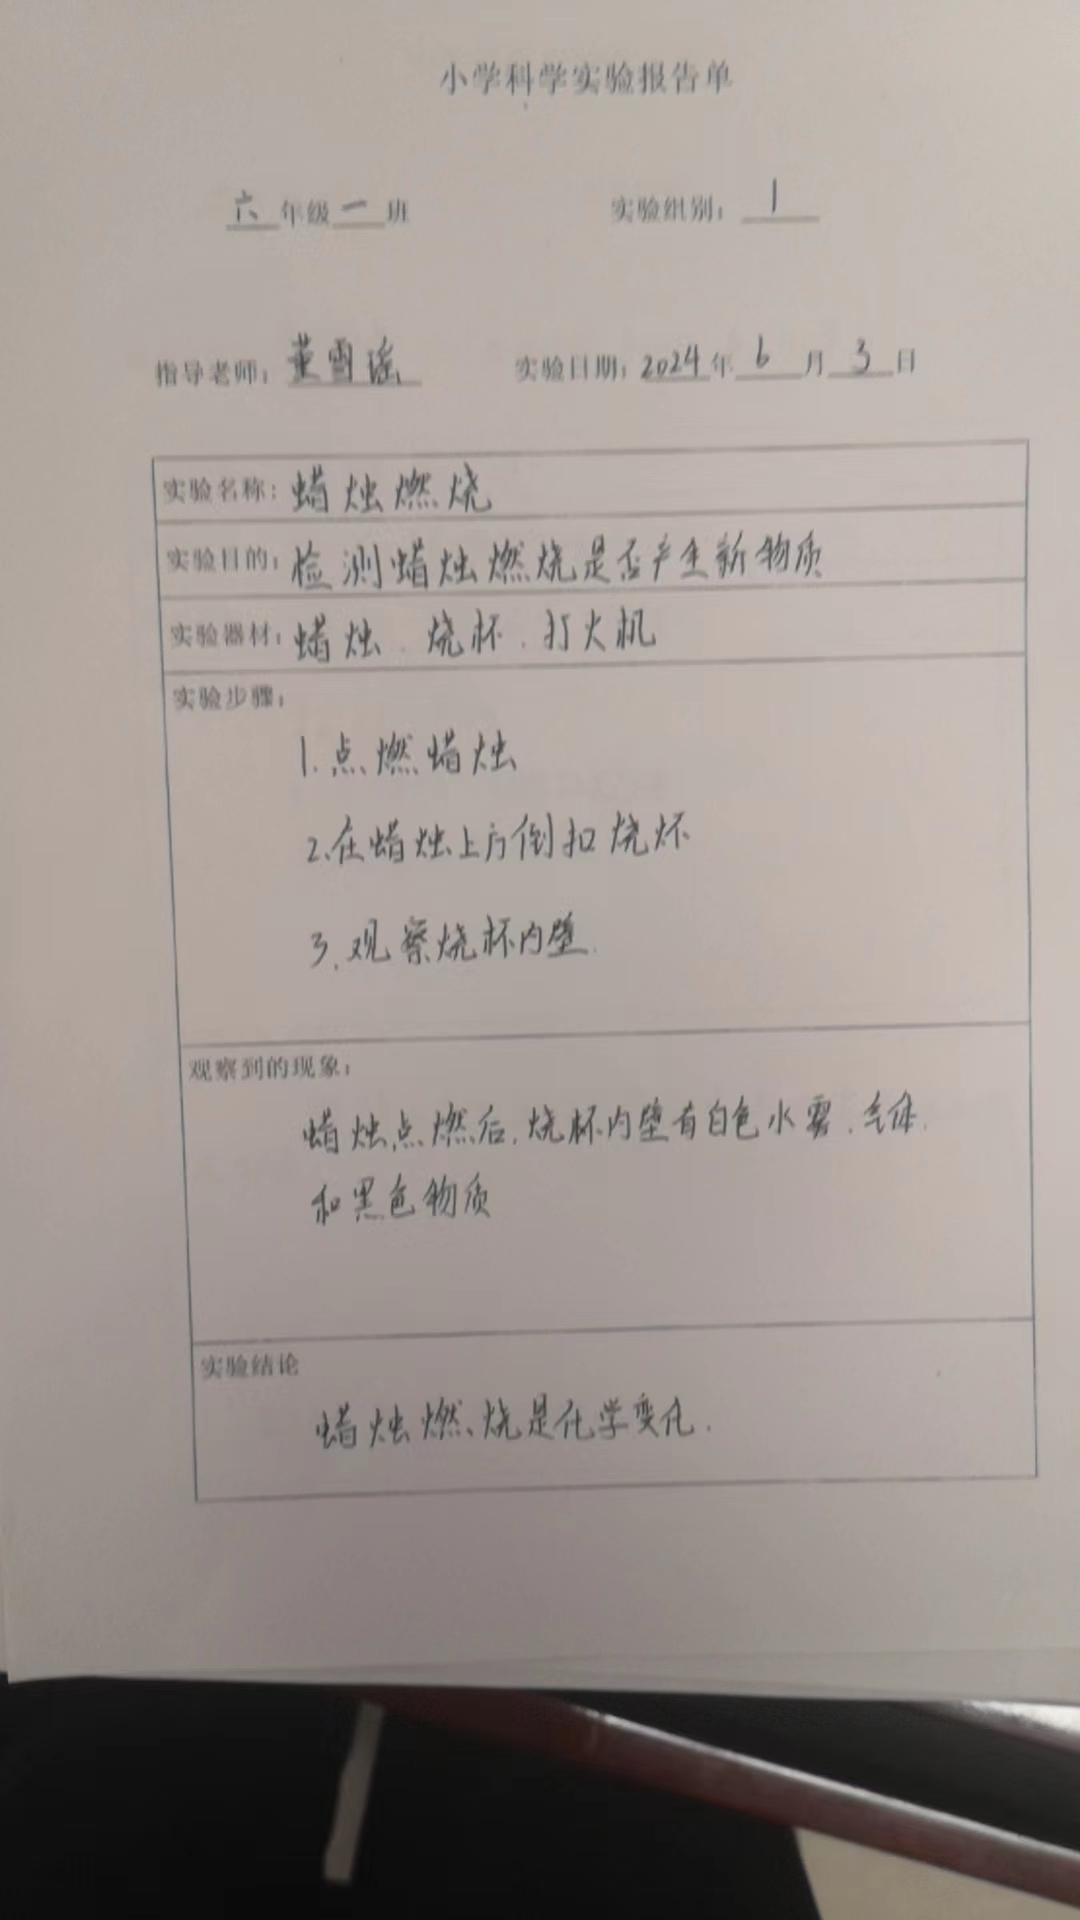 小学科学实验报告单
六年级一班 实验组别：1
指导老师：董雪瑶 实验日期：2024年6月3日
实验名称：蜡烛燃烧
实验目的：检测蜡烛燃烧是否产生新物质
实验器材：蜡烛、烧杯、打火机
实验步骤：
1.点燃蜡烛
2.在蜡烛上方倒扣烧杯
3.观察烧杯内壁.
观察到的现象：
蜡烛点燃后,烧杯内壁有白色水雾、气体
和黑色物质
实验结论
蜡烛燃烧是化学变化.